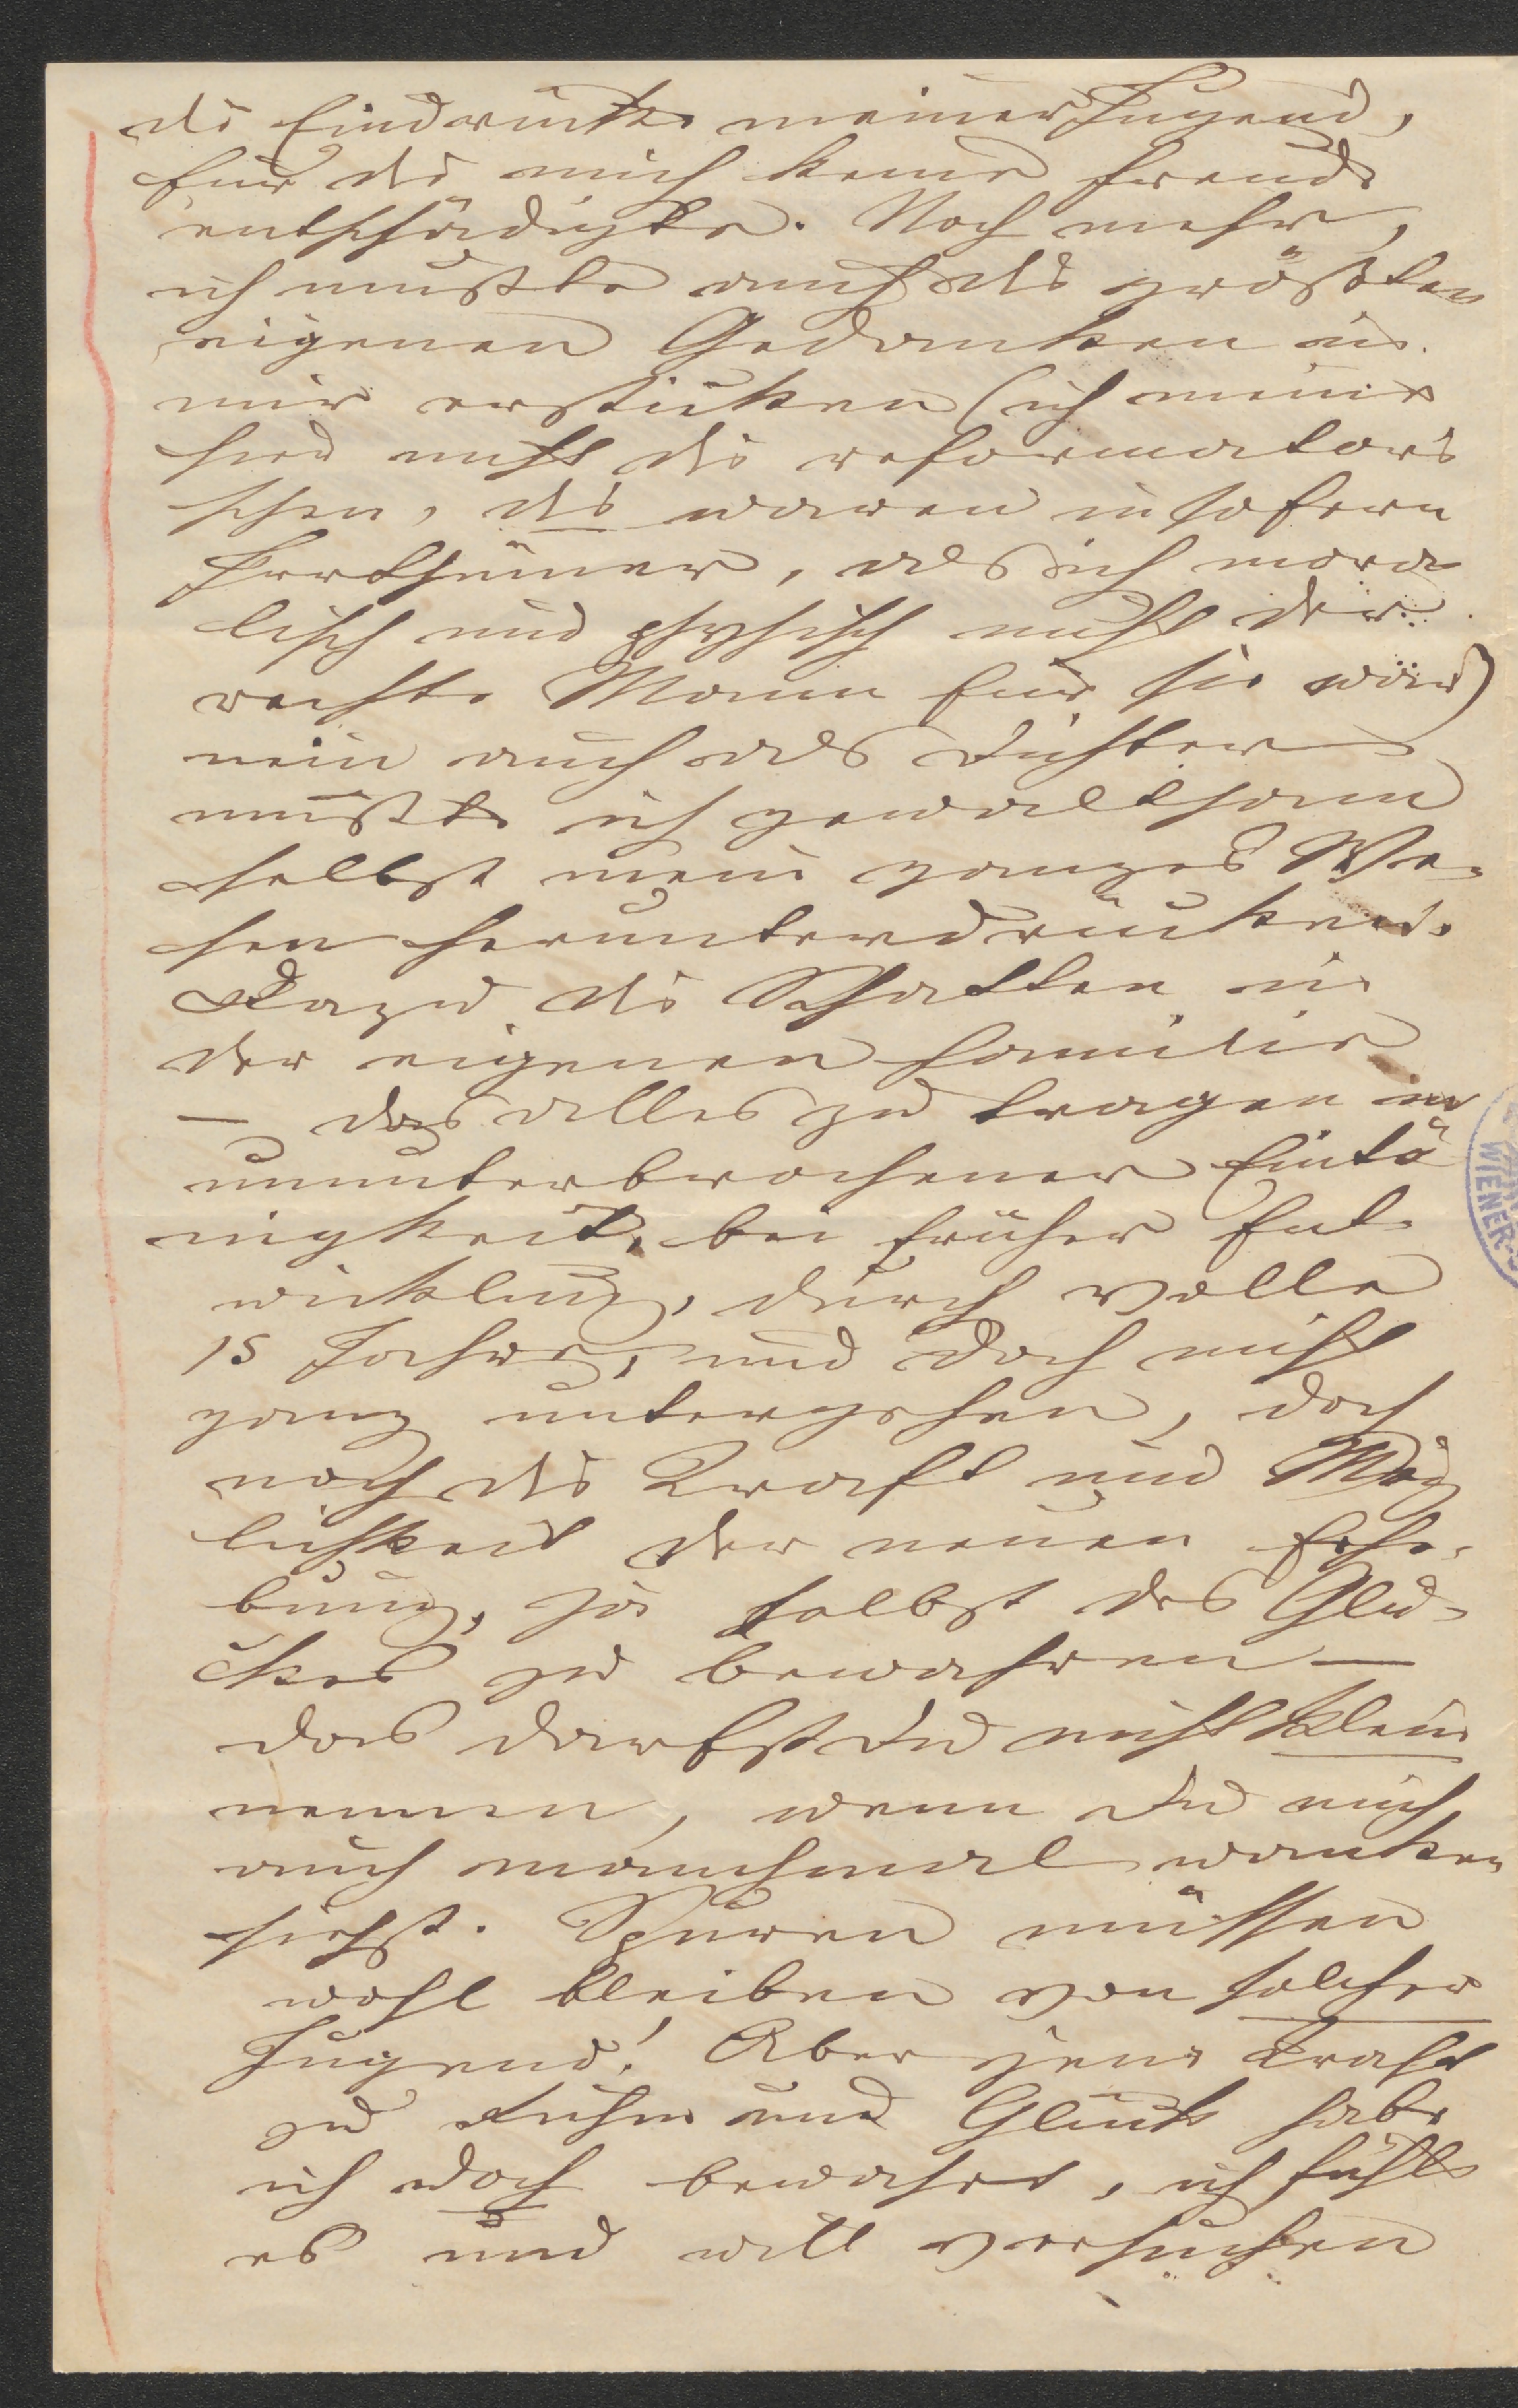 die Eindrücke meiner Jugend,
für die mich keine Freude
entschädigte. Noch mehr,
ich mußte auch die größten
eigenen Gedanken in
mir ersticken (ich meine
hier nicht die reformatori
schen, die waren insofern
Irrthümer, als ich mora
lisch und physisch nicht der
rechte Mann für sie war)
nein auch als Dichter
mußte ich gewaltsam
selbst mein ganzes We-
sen herunterdrücken.
Dazu die Schatten in
der eigenen Familie
— das alles zu tragen in
ununterbrochener Eintö
nigkeit, bei früher Ent
wicklung, durch volle
15 Jahre, und doch nicht
ganz untergehen, doch
noch die Kraft und Mög
lichkeit der neuen Erhe-
bung, ja selbst des Glü-
ckes zu bewahren —
das darfst Du nicht klein
nennen, wenn Du mich
auch manchmal wanken
siehst. Spuren müssen
wohl bleiben von solcher
Jugend! Aber jene Kraft
zu Ruhm und Glück habe
ich doch bewahrt, ich fühle
es und will versuchen
WIENER